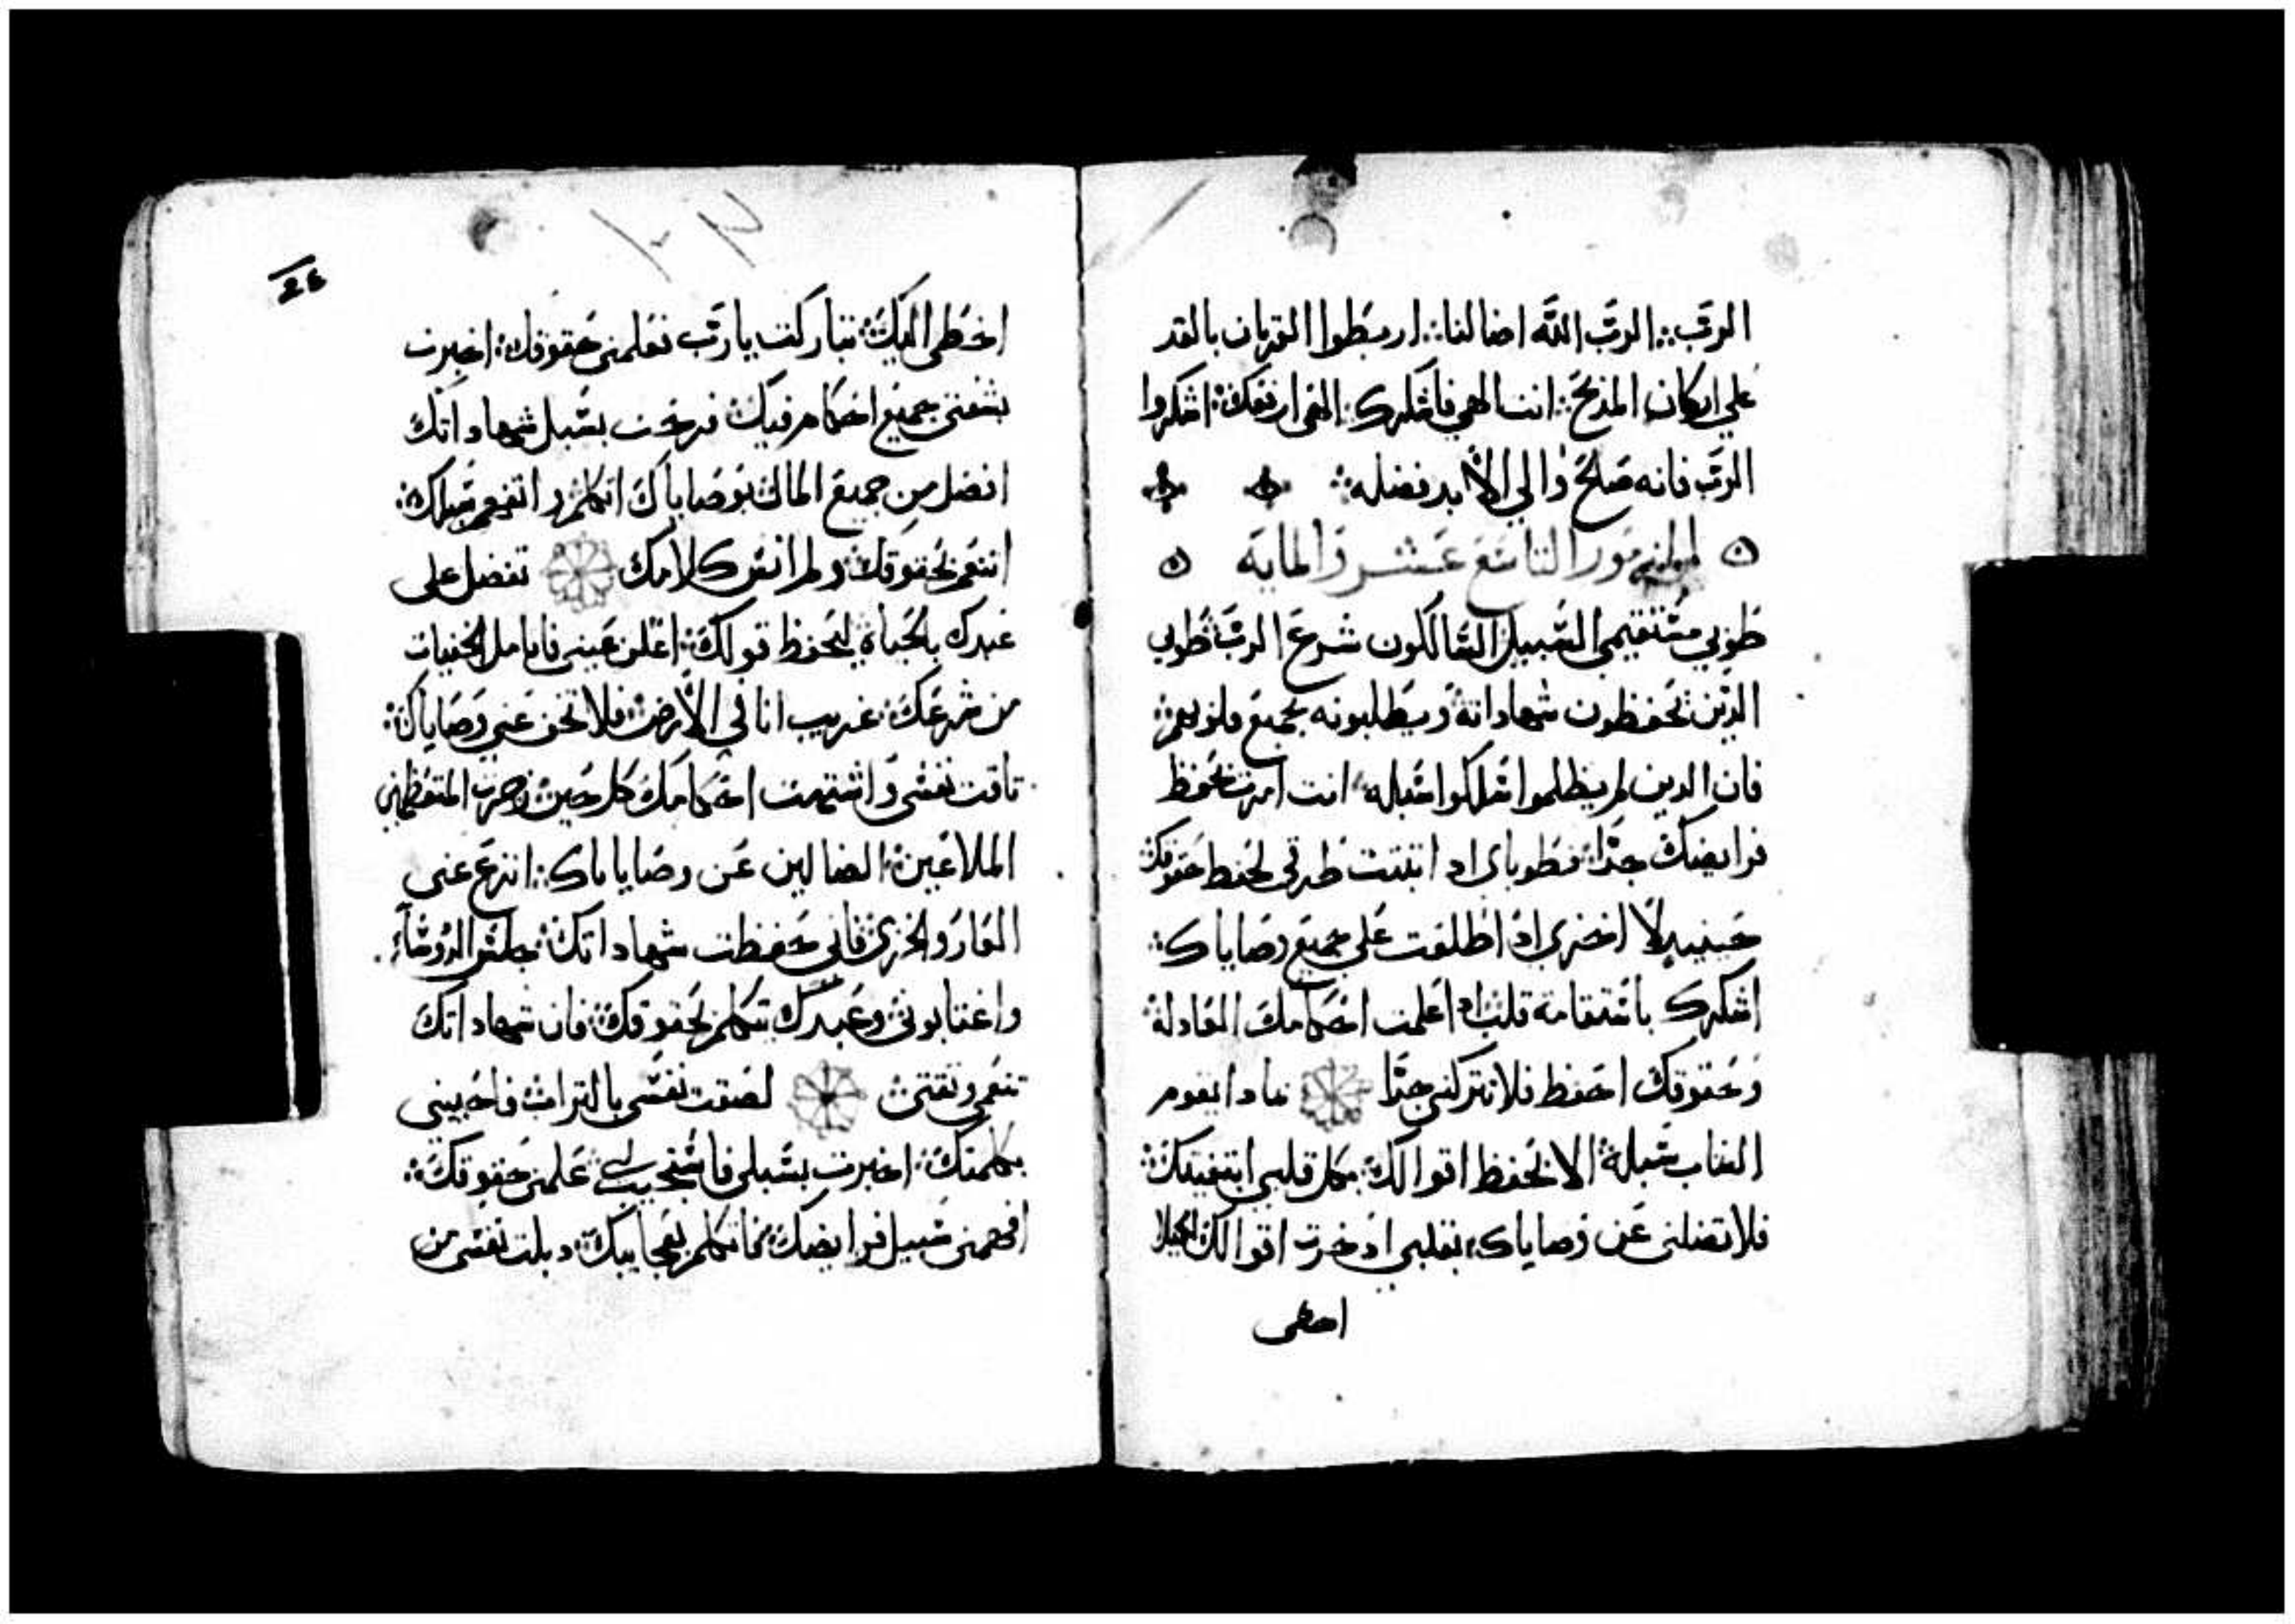 الرب؞ الرب الله اضا لنا؞ اربطوا القربان بالقد
علي اركان المذبح؞ انت الهي فاشكرك؞ الهي ارفعك؞ اشكروا
الرب فانه صلح والي الابد فضله؞
المزمور التاسع عشر والمايه
طوبي مستقيمي السبيل السالكون شرع الرب؞ طوبي
الذين يحفظون شهاداته ويطلبونه بجميع قلوبهم؞
فان الدين لم يظلموا سلكوا سبله؞ انت امرت بحفظ
فرايضك جدا؞ فطوباي اد اتقنت طرقي لحفظ حقوقك؞
حينيد لا اخزي اد اطلعت علي جميع وصاياك؞
اشكرك باستقامة قلب؞ اد اعلمت احكامك العادلة؞
وحقوقك احفظ فلا تتركني جدا بمادا يقوم
الشاب سبله؞ الا بحفظ اقوالك؞ بكل قلبي ابتغيتك؞
فلا تضلني عن وصاياك؞ بقلبي ادخرت اقوالك لكيلا
اخطى
24
اخطي اليك؞ تباركت يا رب تعلمني حقوقك؞ اخبرت
بشفتي جميع احكام فيك؞ فرحت بسبل شهاداتك
افضل من جميع المال؞ بوصاياك اتكلم واتفهم سبلك؞
اتنعم بحقوقك؞ ولم انس كلامك تفضل على
عبدك بالحياة؞ ليحفظ قولك؞ اعلن عيني فاتامل الخفيات
من شرعك؞ غريب انا في الارض؞ فلا تخف عني وصاياك؞
تاقت نفسي واشتهت احكامك كل حين؞ زجرت المتعظمين
الملاعين؞ الضالين عن وصاياك؞ انزع عني
العار والخزي؞ فاني حفظت شهاداتك؞ جلس الروسآء
واغتابوني؞ وعبدك تكلم بحقوقك؞ فان شهاداتك
تنعمي وثقتي؞ لصقت نفسي بالتراب؞ فاحييني
بكلمتك؞ اخبرت بسبلي فاستجيب لي؞ علمني حقوقك؞
افهمني سبيل فرايضك؞ فاتكلم بعجايبك؞ دبلت نفسي من